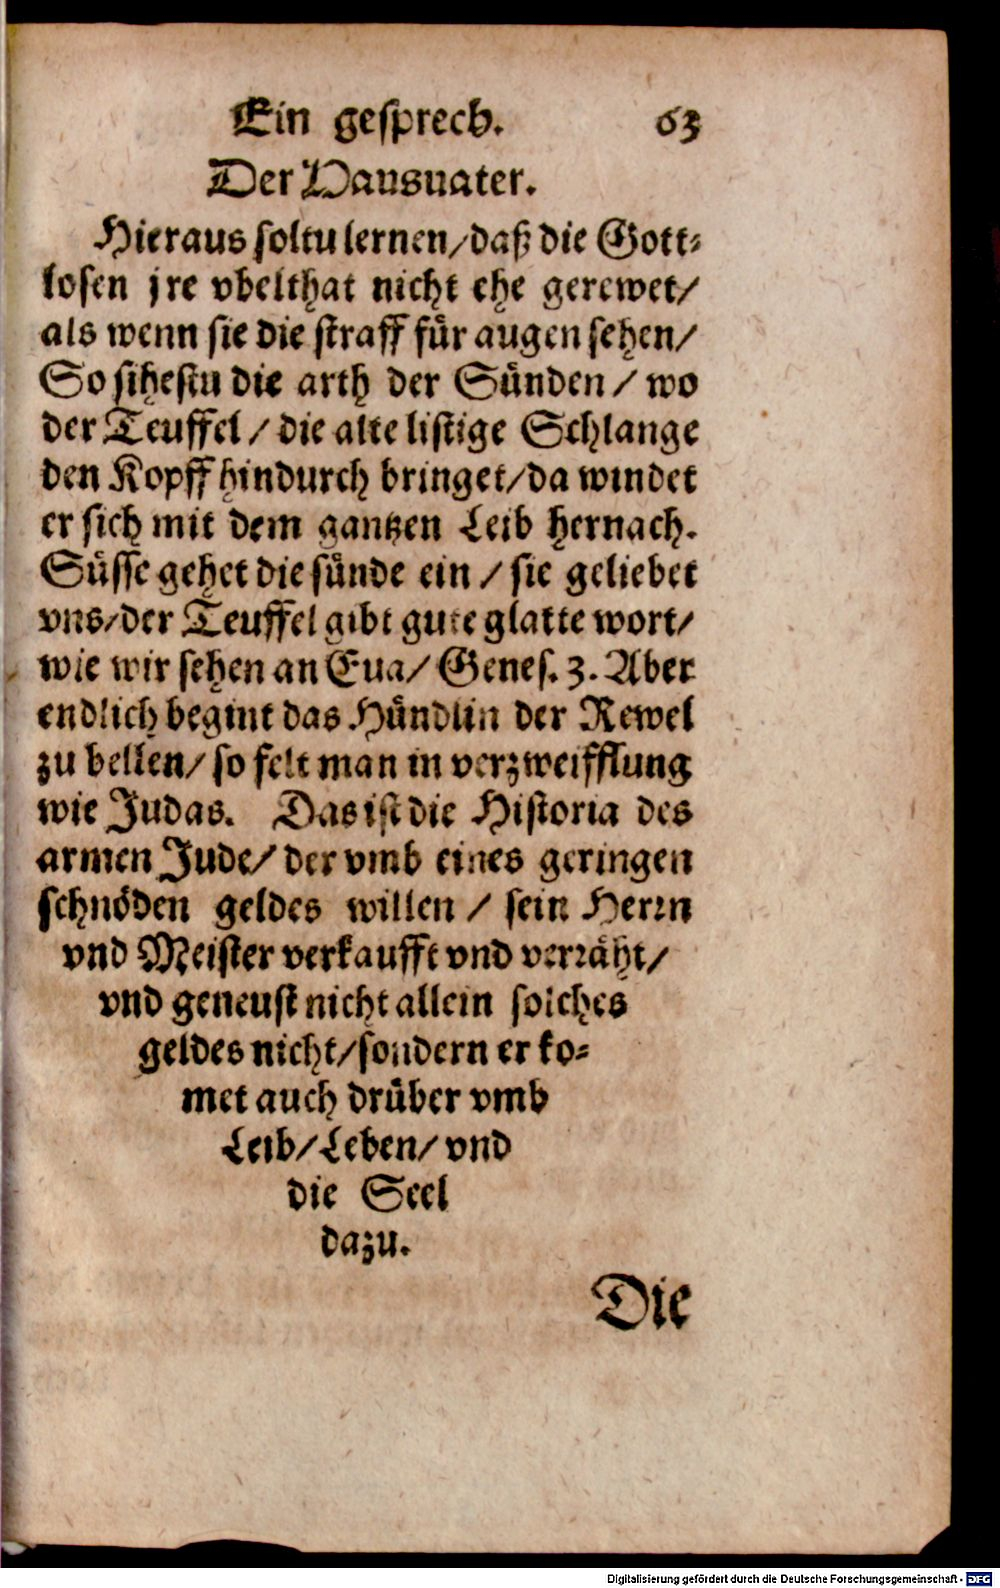 Ein gesprech. 63
Der Hausuater.
Hieraus soltu lernen/daß die Gott⸗
losen jre vbelthat nicht ehe gerewet/
als wenn sie die straff für augen sehen/
So sihestu die arth der Sünden / wo
der Teuffel / die alte listige Schlange
den Kopff hindurch bringet/da windet
er sich mit dem gantzen Leib hernach.
Süsse gehet die sünde ein / sie geliebet
vns/der Teuffel gibt gute glatte wort/
wie wir sehen an Eua/ Genes. 3. Aber
endlich begint das Hündlin der Rewel
zu bellen/ so felt man in verzweifflung
wie Judas. Das ist die Historia des
armen Jude/ der vmb eines geringen
schnöden geldes willen / sein Herrn
vnd Meister verkaufft vnd verräht/
vnd geneust nicht allein solches
geldes nicht/sondern er ko⸗
met auch drüber vmb
Leib/Leben/ vnd
die Seel
dazu.
Die
Digitalisierung gefördert durch die Deutsche Forschungsgemeinschaft - DFG